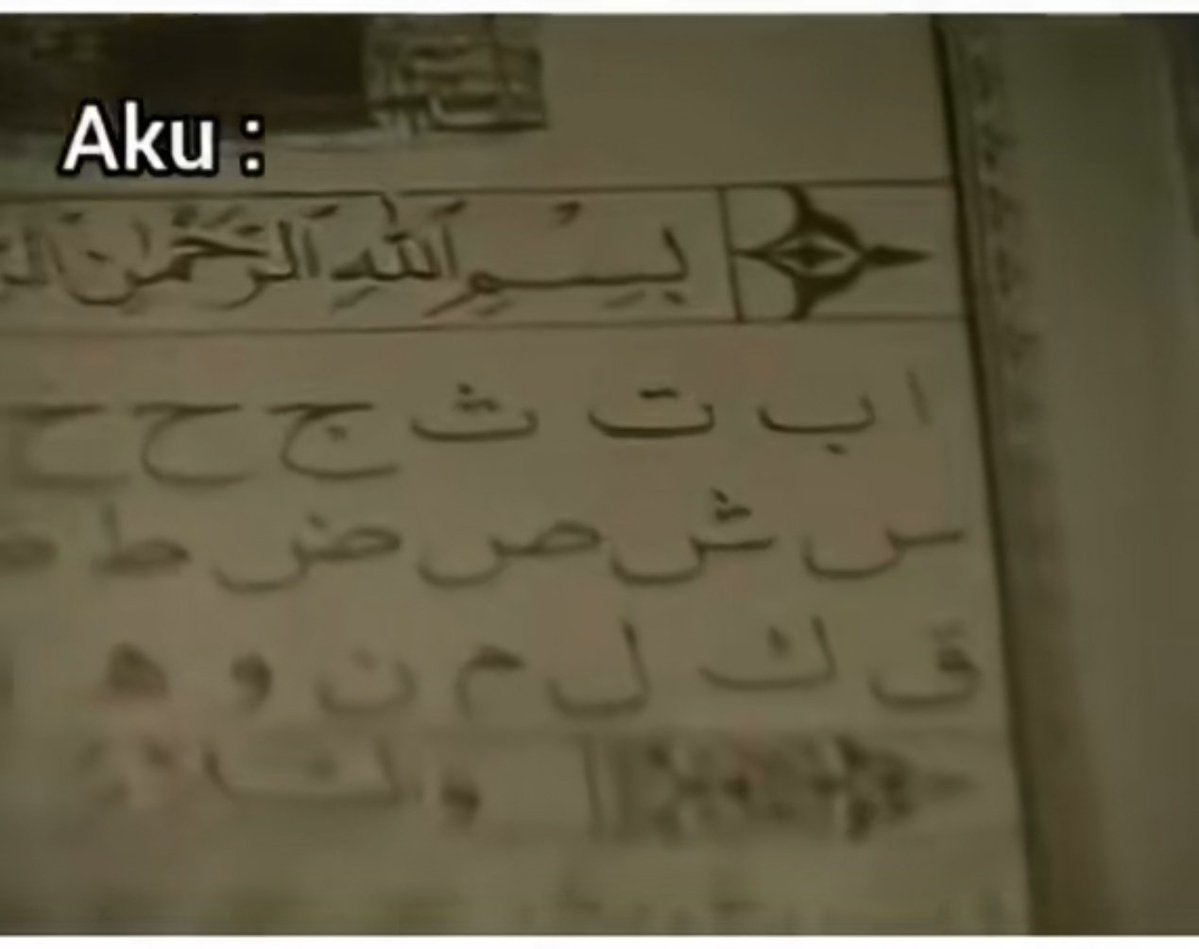 Aku :
بِسْمِ اللهِ الرَّحْمٰنِ
ا ب ت ث ج ح
س ش ص ض ط
ق ك ل م ن و ه